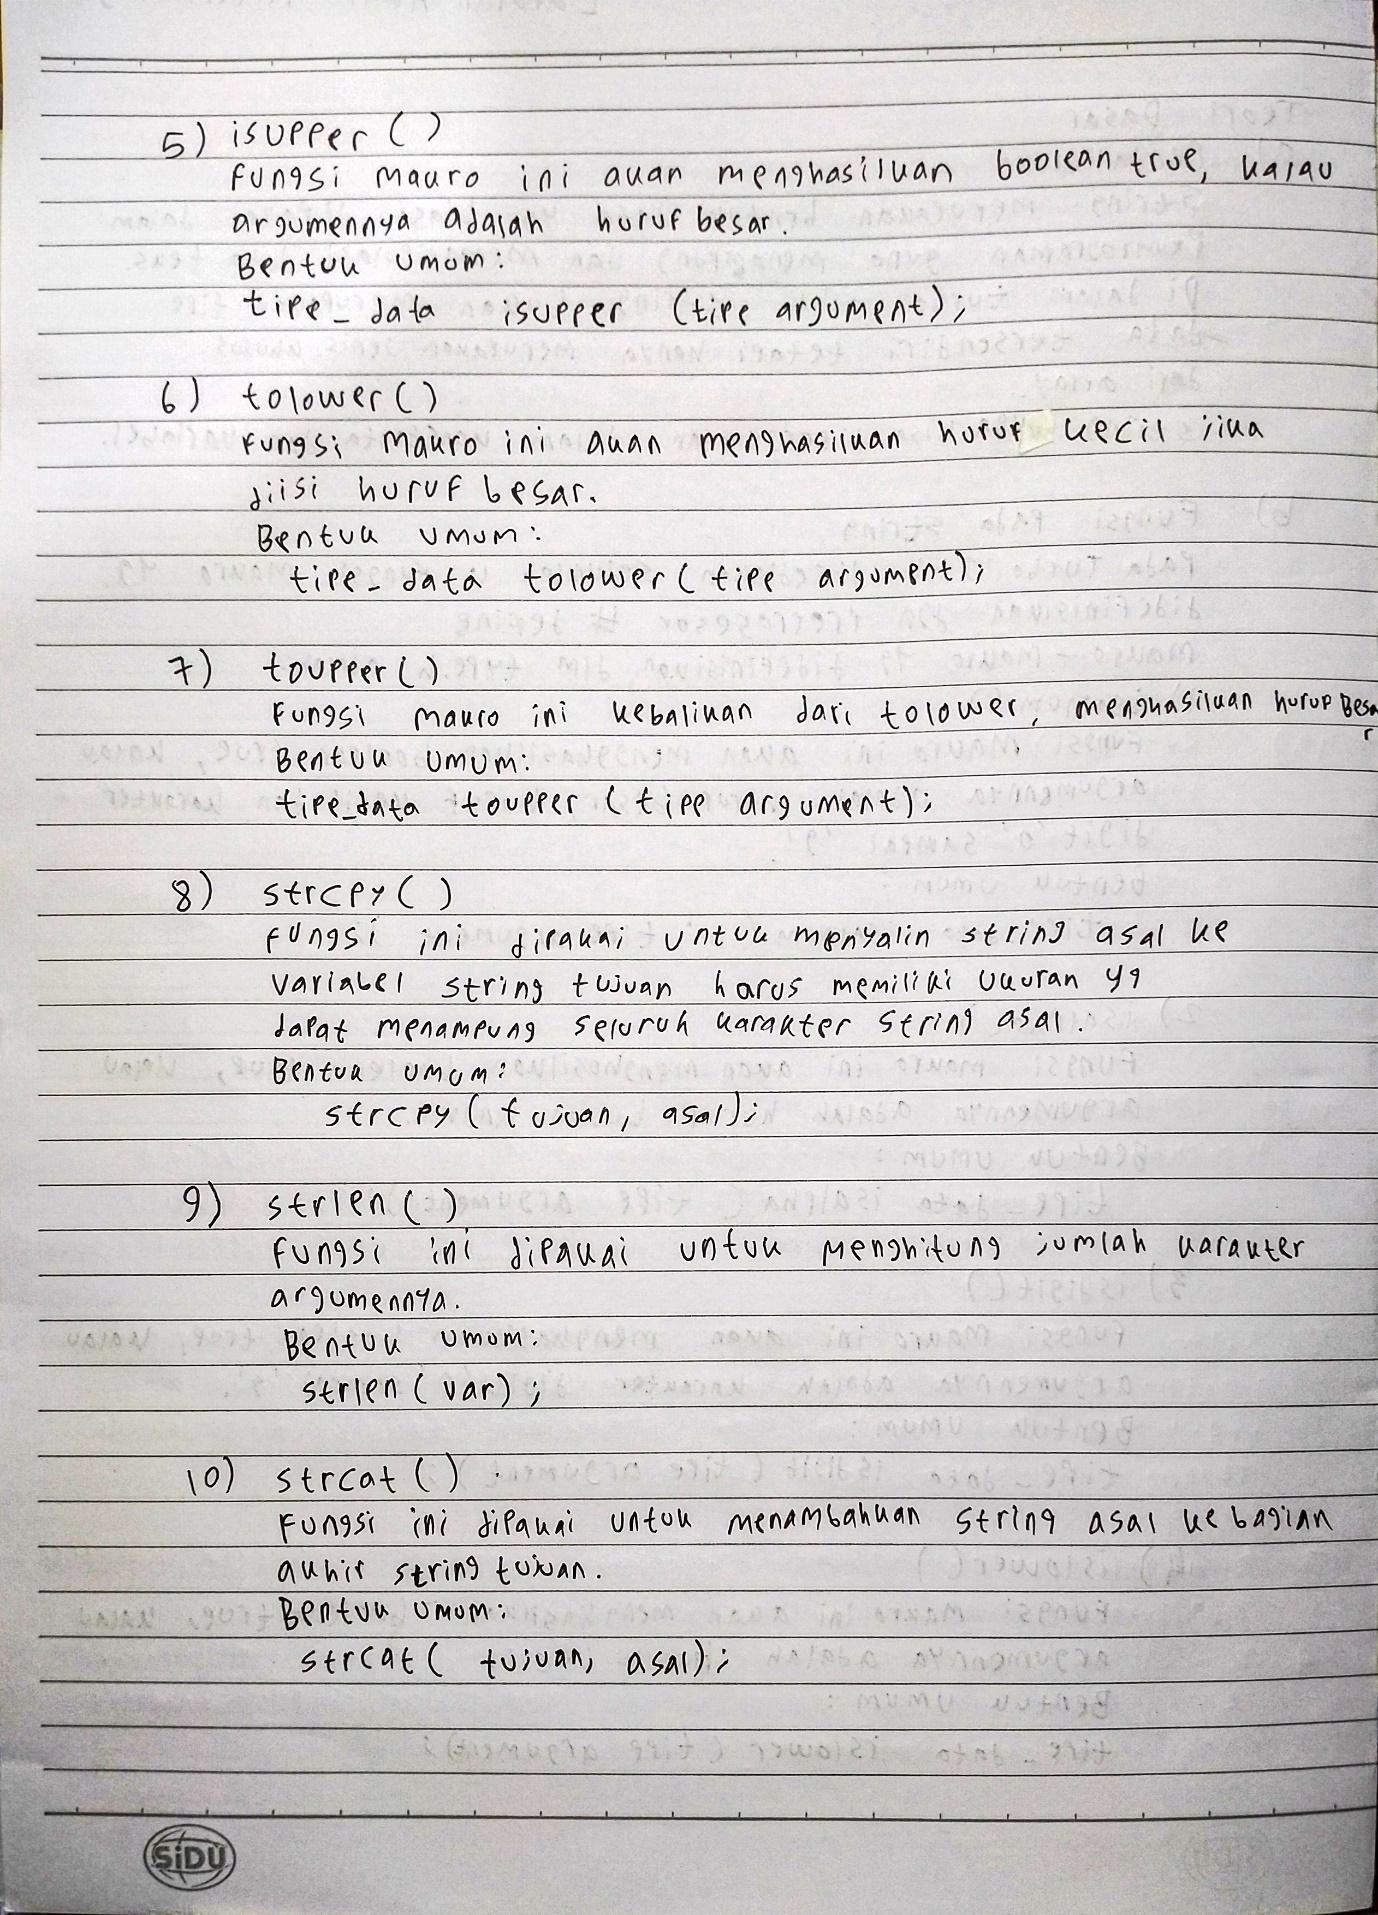 5) isupper ()
Fungsi makro ini akan menghasilkan boolean true, kalau
argumennya adalah huruf besar.
Bentuk umum:
tipe_data isupper (tipe argument);
6) tolower ()
Fungsi makro ini akan menghasilkan huruf kecil jika
diisi huruf besar.
Bentuk umum:
tipe_data tolower (tipe argument);
7) toupper ()
Fungsi makro ini kebalikan dari tolower, menghasilkan hurup Besa
r
Bentuk umum:
tipe_data toupper (tipe argument);
8) strcpy ()
fungsi ini dipakai untuk menyalin string asal ke
variabel string tujuan harus memiliki ukuran yg
dapat menampung seluruh karakter string asal.
Bentuk umum:
strcpy (tujuan, asal);
9) strlen ()
fungsi ini dipakai untuk menghitung jumlah karakter
argumennya.
Bentuk umum:
strlen (var);
10) strcat ()
Fungsi ini dipakai untuk menambahkan string asal ke bagian
akhir string tujuan.
Bentuk umum:
strcat ( tujuan, asal);
SiDU